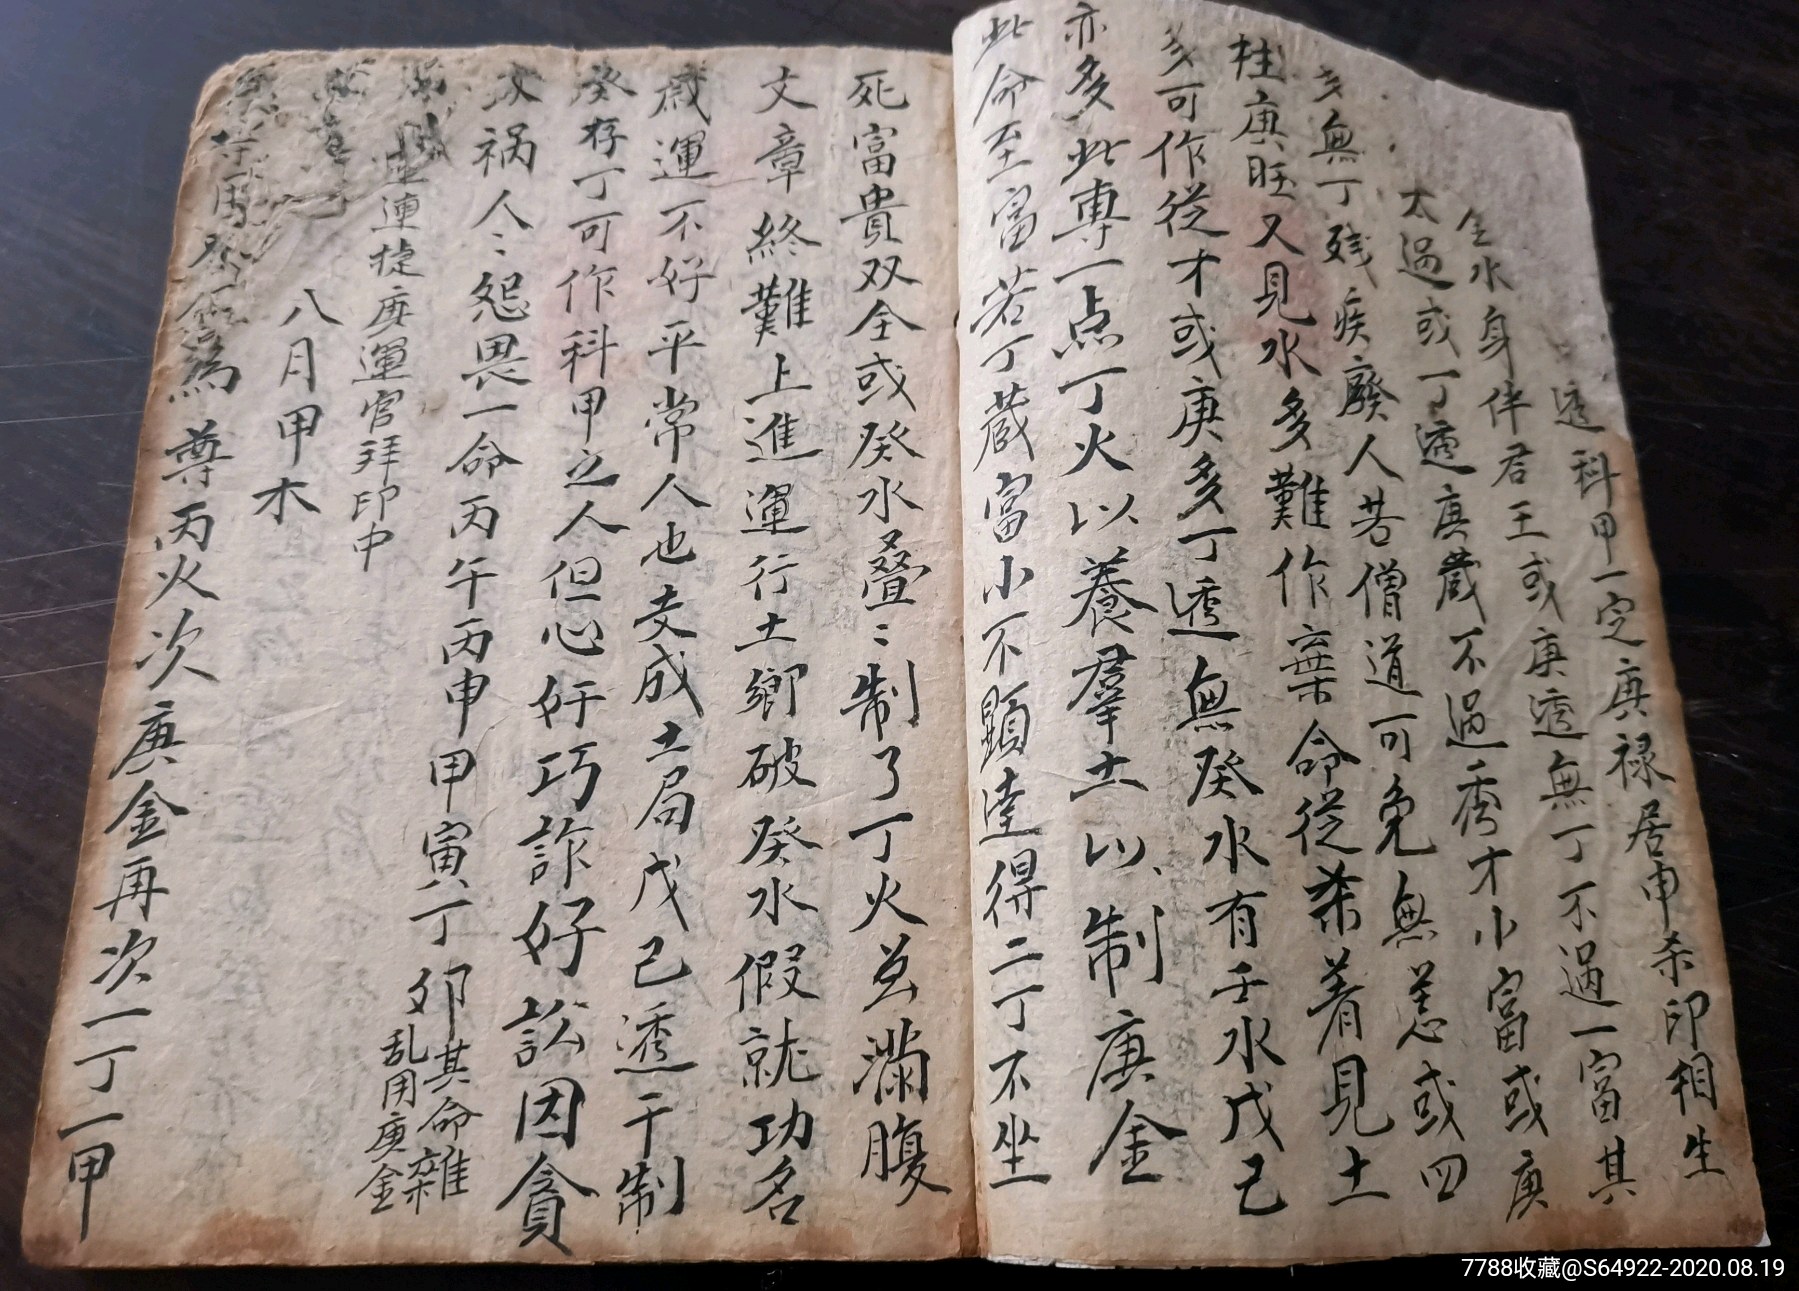 透科甲一定庚禄居申杀印相生
金水身伴君王或庚透無丁不过一富其
太過或丁透庚藏不過秀才小富或庚
多無丁残疾廢人若僧道可免無恙或四
柱庚旺又見水多難作棄命從杀着見土
多可作從才或庚多丁透無癸水有壬水戊己
亦多此專一点丁火以養羣土以制庚金
此命至富若丁藏富小不顕達得二丁不坐
死富貴双全或癸水叠〻制了丁火並滿腹
文章終難上進運行土鄉破癸水假就功名
歲運不好平常人也支成土局戊己透干制
癸存丁可作科甲之人但心奸巧詐好訟因貪
禍人〻怨畏一命丙午丙申甲寅丁卯其命雜
乱用庚金
連捷庚運官拜印中
八月甲木
為尊丙火次庚金再次一丁一甲
7788收藏@S64922-2020.08.19